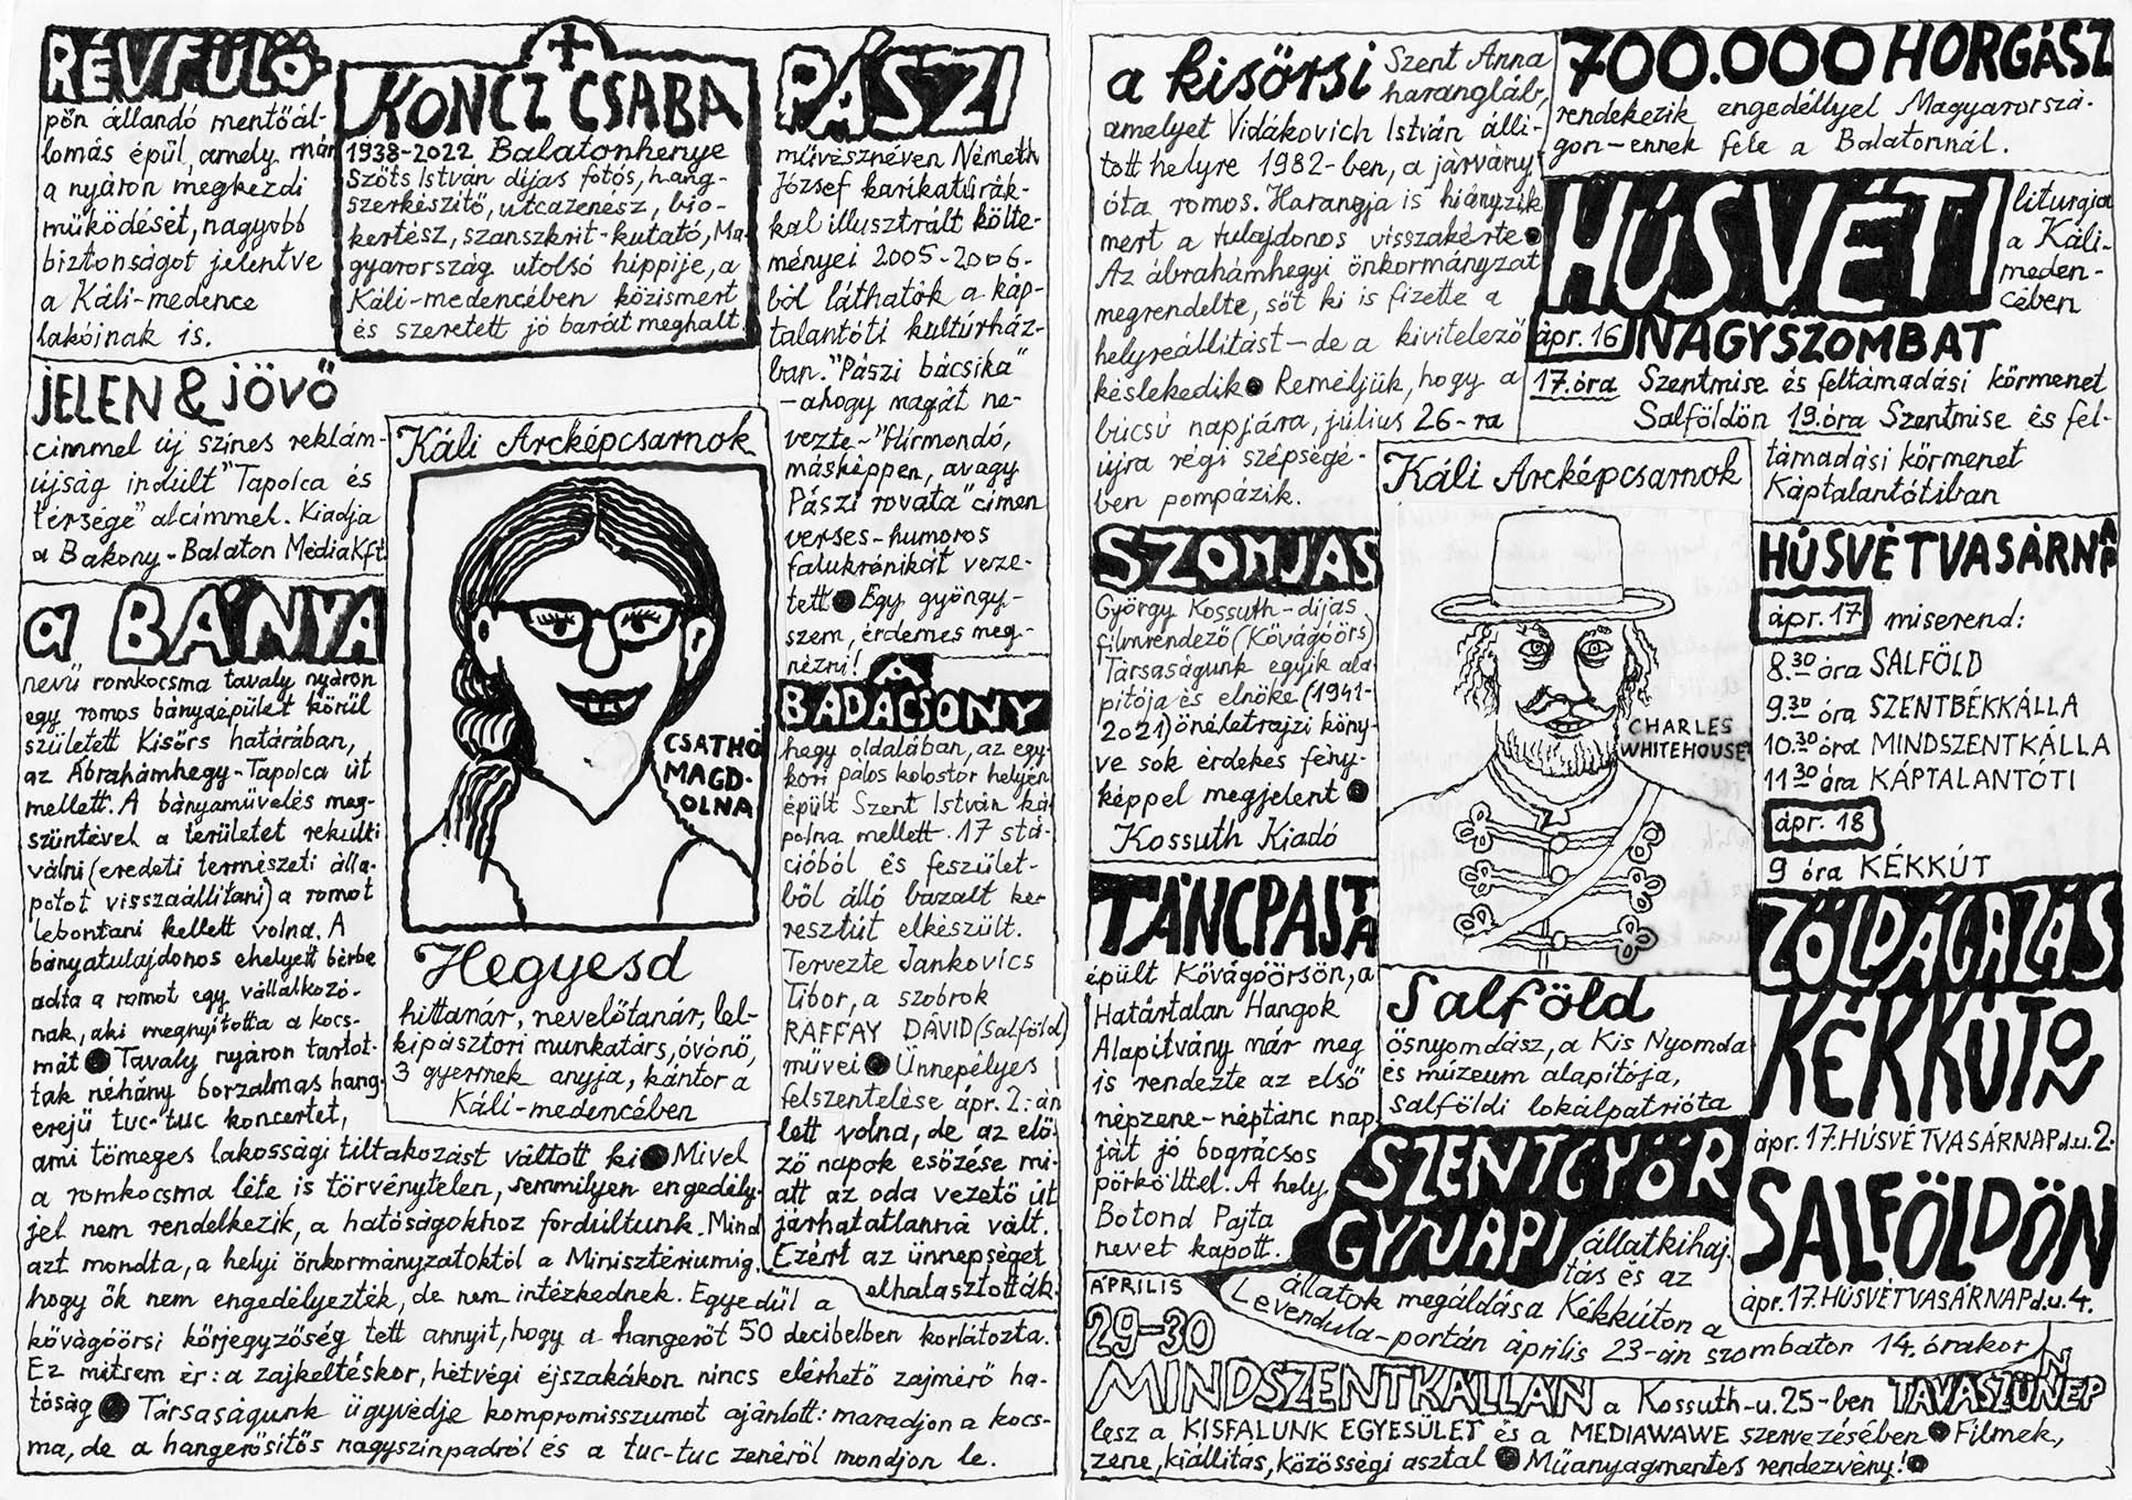 RÉVFÜLÖ-
pön állandó mentőál-
lomás épül, amely már
a nyáron megkezdi
működését, nagyobb
biztonságot jelentve
a Káli-medence
lakóinak is.
KONCZ CSABA
1938-2022, Balatonhenye
Szőts István díjas fotós, hang-
szerkészítő, utcazenész, bio-
kertész, szanszkrit-kutató, Ma-
gyarország utolsó hippije, a
Káli-medencében közismert
és szeretett jó barát meghalt.
PÁSZI
művésznéven Németh
József karikatúrák-
kal illusztrált költe-
ményei 2005-2006-
ból láthatók a káp-
talantóti kultúrház-
ban. "Pászi bácsika"
-ahogy magát ne-
vezte-"Hírmondó,
másképpen, avagy
Pászi rovata" címen
verses-humoros
falukrónikát veze-
tett ● Egy gyöngy-
szem, érdemes meg-
nézni!
JELEN & JÖVŐ
címmel új színes reklám-
újság indult "Tapolca és
térsége" alcímmel. Kiadja
a Bakony-Balaton Média Kft.
a BÁNYA
nevű romkocsma tavaly nyáron
egy romos bányaépület körül
született Kisörs határában,
az Ábrahámhegy-Tapolca út
mellett. A bányaművelés meg-
szűntével a területet rekulti-
válni (eredeti természeti álla-
potot visszaállítani) a romot
lebontani kellett volna. A
bányatulajdonos ehelyett bérbe
adta a romot egy vállalkozó-
nak, aki megnyitotta a kocs-
mát ● Tavaly nyáron tartot-
tak néhány borzalmas hang-
erejű tuc-tuc koncertet,
ami tömeges lakossági tiltakozást váltott ki ● Mivel
a romkocsma léte is törvénytelen, semmilyen engedély-
jel nem rendelkezik, a hatóságokhoz fordultunk. Mind
azt mondta, a helyi önkormányzatoktól a Minisztériumig,
hogy ők nem engedélyezték, de nem intézkednek. Egyedül a
kővágóörsi körjegyzőség tett annyit, hogy a hangerőt 50 decibelben korlátozta.
Ez mitsem ér: a zajkeltéskor, hétvégi éjszakákon nincs elérhető zajmérő ha-
tóság ● Társaságunk ügyvédje kompromisszumot ajánlott: maradjon a kocs-
ma, de a hangerősítős nagyszínpadról és a tuc-tuc zenéről mondjon le.
Káli Arcképcsarnok
CSATHÓ
MAGD-
OLNA
Hegyesd
hittanár, nevelőtanár, lel-
kipásztori munkatárs, óvónő,
3 gyermek anyja, kántor a
Káli-medencében
A
BADACSONY
hegy oldalában, az egy-
kori pálos kolostor helyén
épült Szent István ká-
polna mellett 17 stá-
cióból és feszület-
ből álló bazalt ke-
resztút elkészült.
Tervezte Jankovics
Tibor, a szobrok
RAFFAY DÁVID (Salföld)
művei ● Ünnepélyes
felszentelése ápr. 2.-án
lett volna, de az elő-
ző napok esőzése mi-
att az oda vezető út
járhatatlanná vált.
Ezért az ünnepséget
elhalasztották.
a kisörsi Szent Anna
harangláb,
amelyet Vidákovich István állí-
tott helyre 1982-ben, a járvány
óta romos. Harangja is hiányzik
mert a tulajdonos visszakérte ●
Az ábrahámhegyi önkormányzat
megrendelte, sőt ki is fizette a
helyreállítást-de a kivitelező
késlekedik ● Reméljük, hogy a
búcsú napjára, július 26-ra
újra régi szépségé-
ben pompázik.
700.000 HORGÁSZ
rendekezik engedéllyel Magyarorszá-
gon-ennek fele a Balatonnál.
HÚSVÉTI liturgia
a Káli-
meden-
cében
ápr. 16 NAGYSZOMBAT
17.óra Szentmise és feltámadási körmenet
Salföldön 19.óra Szentmise és fel-
támadási körmenet
Káptalantótiban
HÚSVÉTVASÁRNAP
ápr. 17 miserend:
8.30 óra SALFÖLD
9.30 óra SZENTBÉKKÁLLA
10.30 óra MINDSZENTKÁLLA
11 30 óra KÁPTALANTÓTI
ápr. 18
9 óra KÉKKÚT
SZOMJAS
György Kossuth-díjas
filmrendező (Kővágóörs)
Társaságunk egyik ala-
pítója és elnöke (1941-
2021) önéletrajzi köny-
ve sok érdekes fény-
képpel megjelent ●
Kossuth Kiadó
Káli Arcképcsarnok
CHARLES
WHITEHOUSE
Salföld
ősnyomdász, a Kis Nyomda
és múzeum alapítója,
salföldi lokálpatrióta
TÁNCPAJTA
épült Kővágóörsön, a
Határtalan Hangok
Alapítvány már meg
is rendezte az első
népzene-néptánc nap-
ját jó bográcsos
pörkölttel. A hely
Botond Pajta
nevet kapott.
ZÖLDÁGAZÁS
KÉKKÚTON
ápr. 17. HÚSVÉTVASÁRNAP d.u. 2.
SALFÖLDÖN
ápr. 17. HÚSVÉTVASÁRNAP d.u. 4.
SZENTGYÖR
GYNAPI állatkihaj-
tás és az
állatok megáldása Kékkúton a
Levendula-portán április 23-án szombaton 14. órakor
ÁPRILIS
29-30
MINDSZENTKÁLLÁN a Kossuth-u. 25-ben TAVASZÜNNEP
lesz a KISFALUNK EGYESÜLET és a MEDIAWAWE szervezésében ● Filmek,
zene, kiállítás, közösségi asztal ● Műanyagmentes rendezvény! ●